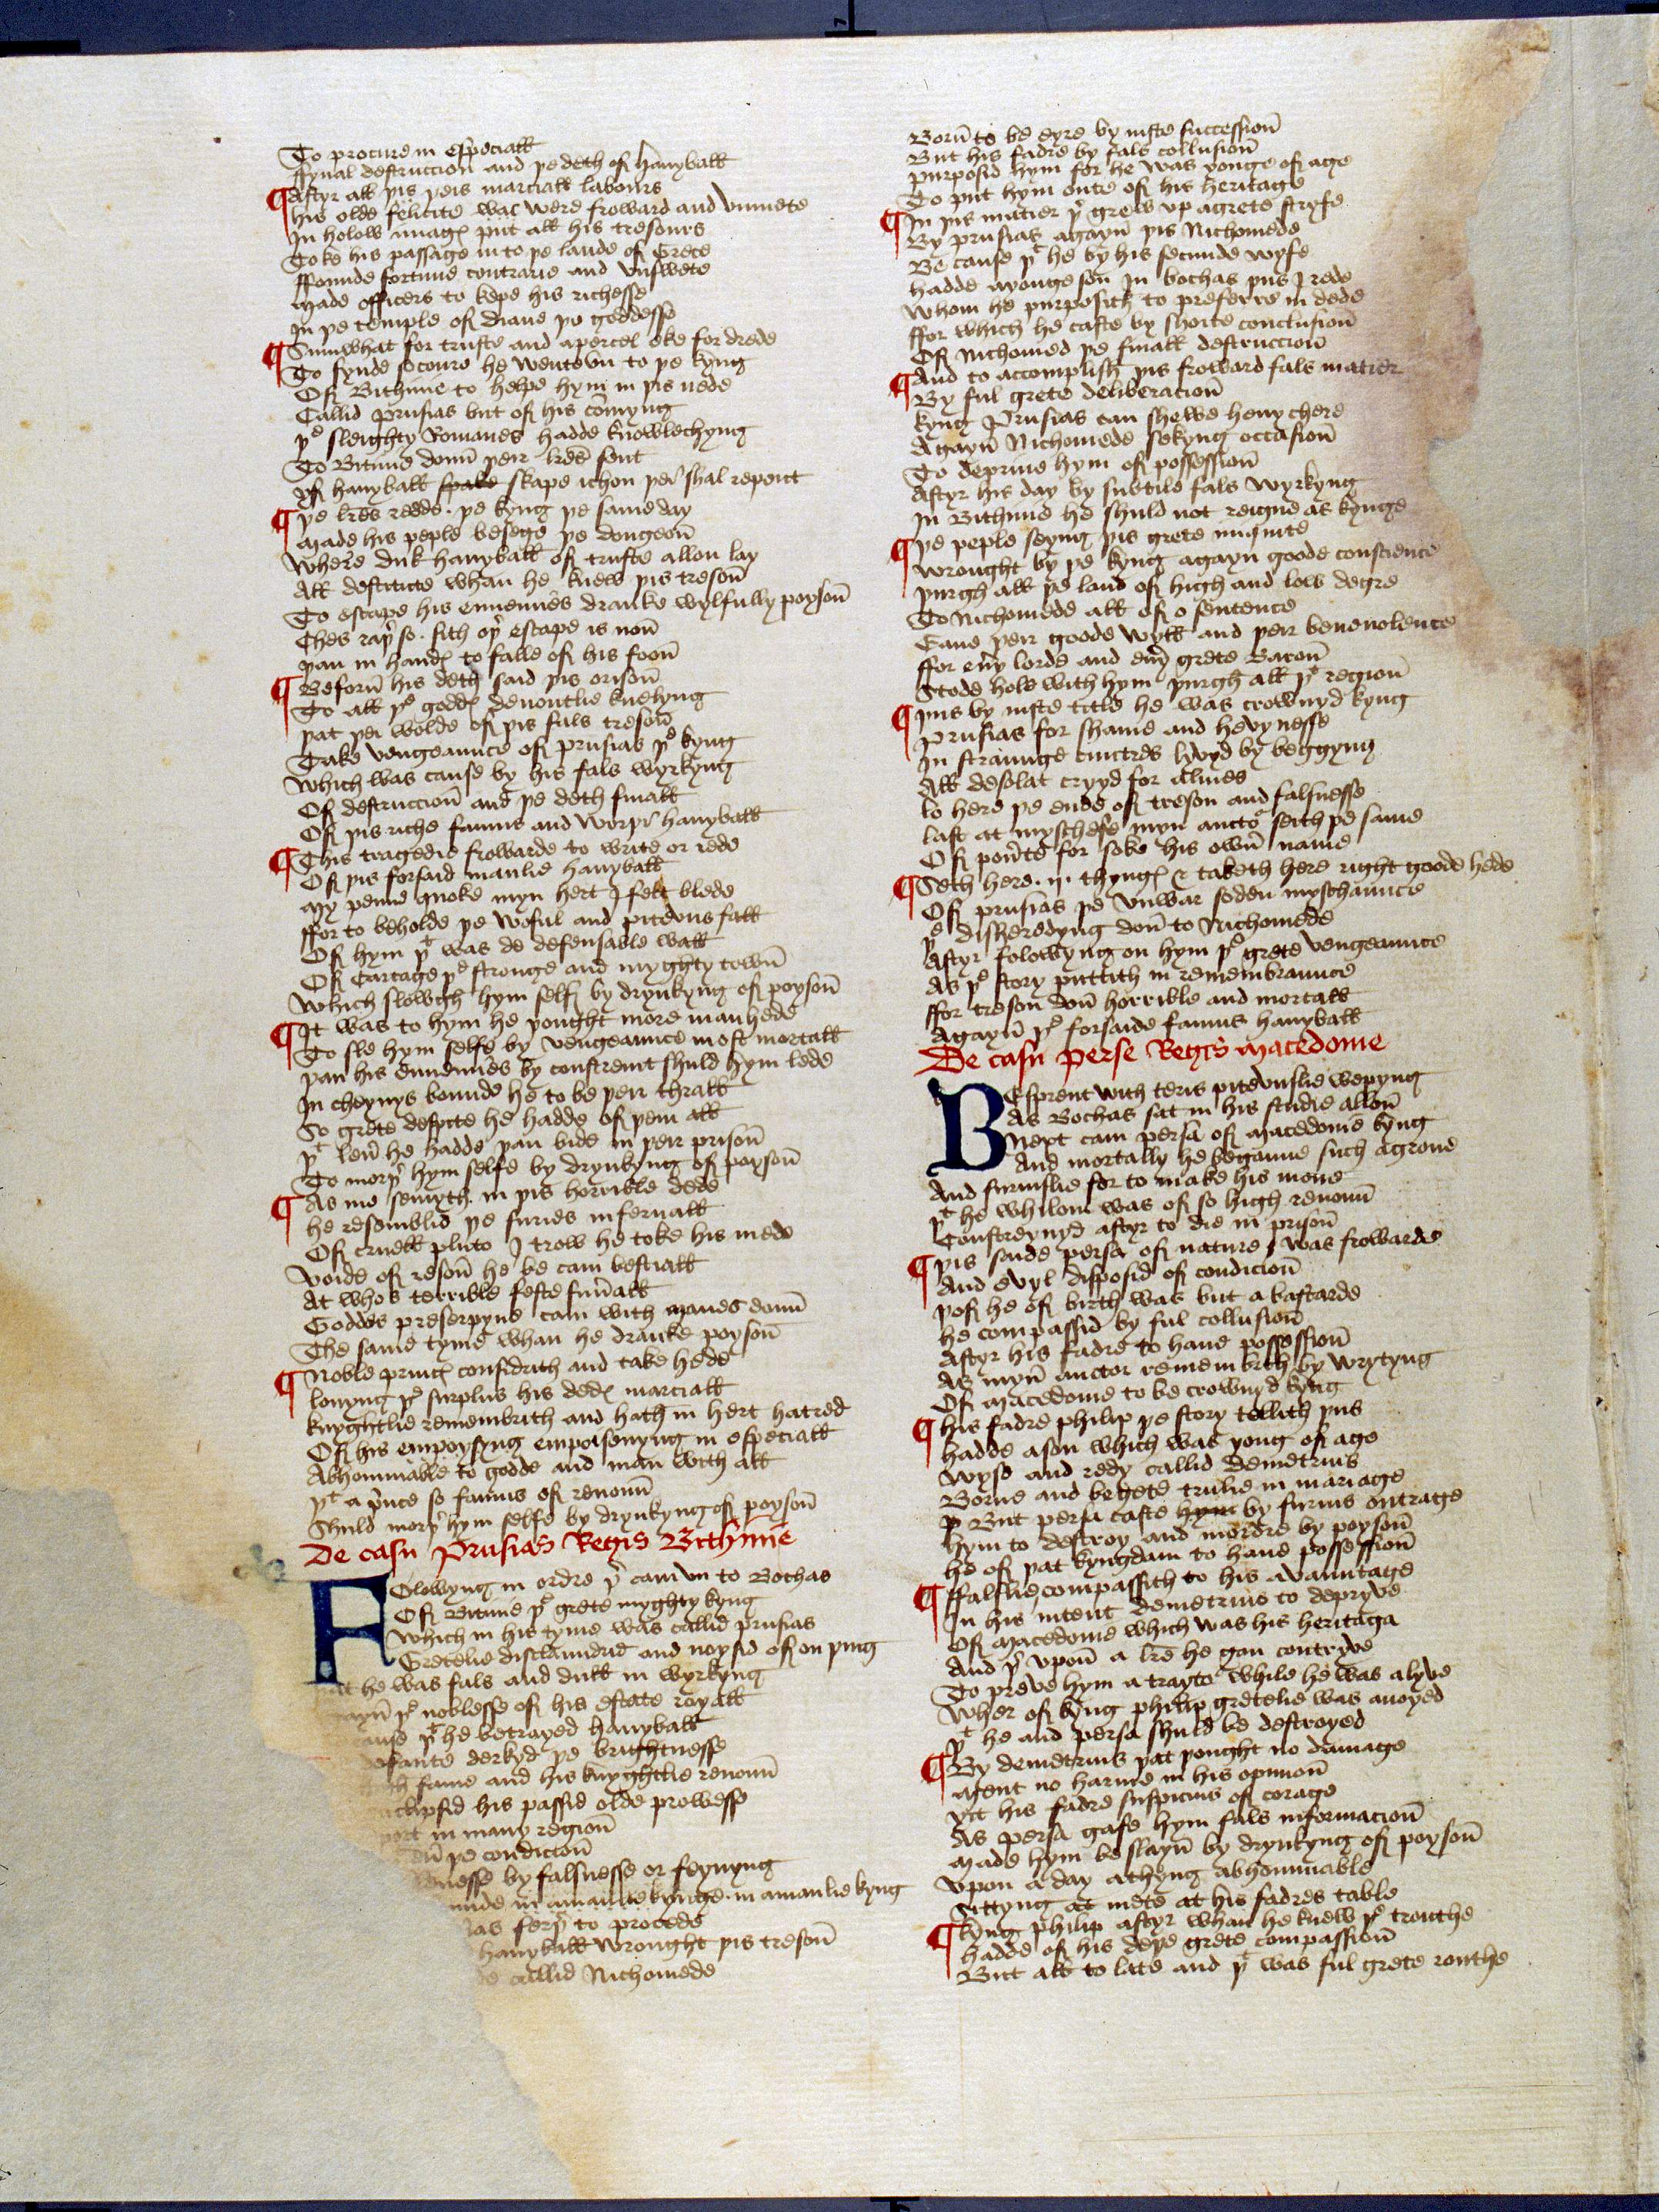 To procure in especiall
ffynal destruccion and þe deth of hanyball
¶ Aftyr all þis þeis marciall labours
his olde felicite wac were froward and vnmete
In holow ymagꝭ put all his tresours
Toke his passage in to þe lande of Grece
ffounde fortune contrarie and vnswete
Made officers to kepe his richesse
In þe temple of diane þe goddesse
¶ Sumwhat for truste and a percel eke for drede
To fynde socoure he wente vn to þe kyng
Of Bithinie to helpe hym in þis nede
Callid Prusias but of his cōmyng
þe sleighty Romanes hadde knowlechyng
To Bitinie doun þeir lr̄es sent
yf hanyball spake skape ichon þei shal repent
¶ þe lr̄es redde . þe kyng þe same day
Made his peple besege þe dongeoun
Where duk hanyball of truste allon lay
All destitute whan he knew þis tresoun
To escape his ennemies dranke wylfully poysoun
Ches raþ so . sith oþ escape is noun
þan in handꝭ to falle of his foon
¶ Beforn his deth said þis orisoun
To all þe goddꝭ deuoutlie knelyng
þat þei wolde of þis fals tresoun
Take vengeaunce of prusias þe kyng
Which was cause by his fals wyrkyng
Of destruccioun and þe deth finall
Of þis riche famus and worþi hanyball
¶ This tragedie frowarde to write or rede
Of þis forsaid manlie hanyball
My penne quoke myn hert I felt blede
ffor to beholde þe woful and piteous fall
Of hym þt was de defensable wall
Of Cartage þe stronge and myghty town
Which slowgh hym self by drynkyng of poysoun
¶ It was to hym he þought more manhede
To sle hym selfe by vengeaunce most mortall
þan his ennemies by constreint shuld hym lede
In cheynys bounde he to be þeir thrall
So grete despite he hadde of þem all
þt leu̅ he hadde þan bide in þeir prisoun
To morþ hym selfe by drynkyng of poysoun
¶ As me semyth in þis horrible dede
he resemblid þe furies infernall
Of cruell pluto I trow he toke his mede
Voide of resoun he be cam bestiall
At whos terrible feste fun̄all
Goddes preserpyne cam with manes doun
The same tyme whan he dranke poysoun
¶ Noble princꝭ considrith and take hede
louyng þe surplus his dedꝭ marciall
knyghtlie remembrith and hath in hert hatred
Of his empoysyng empoisonyng in especiall
Abhominable to godde and man with all
þt a p̄nce so famus of renoun
Shuld morþ hym selfe by drynkyng of poysoun
De casu Prusias Regis Bithinie
FOlowyng in ordre þ cam vn to Bochas
Of Bitinie þe grete myghty kyng
Which in his tyme was callid prusias
Gretelie disclaundrid and noysid of on þing
þat he was fals and dull in wyrkyng
ayn̄ þe noblesse of his estate royall
ause þt he betrayed hanyball
efaute derkyd þe brightnesse
th fame and his knyghtlie renoun
eclipsid his passid olde prowesse
port in many regioun
un̄ þe condicioun
nesse by falsnesse or feynyng
unde in a manlie kynge . in a manlie kyng
ias ferþ to procede
hanyball wrought þis tresoun
de callid Nichomede
Born̄ to be eyre by iuste successioun
But his fadre by fals collusioun
purposid hym for he was yonge of age
To put hym oute of his heritage
¶ In þis matier þ grew vp a grete stryfe
By prusias agayn̄ þis Nichomede
Be cause þt he by his secunde wyfe
hadde a yonge son̄ In bochas þus I rede
Whom he purposith to preferre in dede
ffor which he caste by shorte conclusioun
Of Nichomed þe finall destruccioun
¶ And to accomplish þis froward fals matier
By ful grete deliberacioun
kyng Prusias can shewe heuy chere
Agayn̄ Nichomede sekyng occasioun
To depriue hym of possessioun
Aftyr his day by subtile fals wyrkyng
In Bithinie he shuld not reigne as kynge
¶ þe peple seyng þis grete iniquite
wrought by þe kyng agayn goode conscience
þurgh all þe land of high and low degre
To Nichomede all of o sentence
Gaue þeir goode wyll and þeir beneuolence
ffor eu̅y lorde and eu̅y grete Baron̄
Stode hole with hym þurgh all þe regioun
¶ þus by iuste title he was crownyd kyng
Prusias for shame and hevynesse
In straunge cuntres lyvyd by beggyng
All desolat cryyd for almes
lo here þe ende of treson and falsnesse
last at myschefe myn aucto͛ seith þe same
Of pou̅te for soke his own̄ name
¶ Seth here . ij . thyngꝭ & taketh here right goode hede
Of prusias þe vnwar soden myschaunce
þe disheredyng don̄ to Nichomede
Aftyr folowyng on hym þe grete vengeaunce
As þe story puttith in remembraunce
ffor treson don̄ horrible and mortall
Agayn̄ þe forsaide famus hanyball
De casu Perse Regis Macedonie
BEsprent with teris pitevuslie wepyng
As Bochas sat in his studie allon̄
Next cam persa of Macedonie kyng
And mortally he beganne such a grone
And furiuslie for to make his mone
þt he whilom was of so high renoun
Constreynyd aftyr to die in prisoun
¶ þis saide persa of nature was frowarde
And evyl disposid of condicioun
þof he of birth was but a bastarde
he compassid by ful collusioun
Aftyr his fadre to haue possessioun
As myn̄ auctor remembrith by wrytyng
Of Macedonie to be crownyd kyng
¶ his fadre philip þe story tellith þus
hadde a son which was yong of age
Wyse and redy callid demetrius
Borne and begete trulie in mariage
þ But persa caste hym by furius outrage
hym to destroy and mordre by poysoun
he of þat kyngdam to haue possessioun
¶ ffalslie compassith to his avauntage
In his intent demetrius to depryve
Of Macedonie which was his heritaga
And þ vpon̄ a lr̄e he gan contryve
To preve hym a trayto͛ while he was alyve
Wher of kyng philip gretelie was anoyed
þt he and persa shuld be destroyed
¶ By demetrius þat þought no damage
Ment no harme in his opinioun
Yit his fadre suspicius of corage
As persa gafe hym fals informacioun
Made hym be slayn̄ by drynkyng of poysoun
Vpon a day a thyng abhominable
Sittyng at mete at his fadres table
¶ kyng philip aftyr whan he knew þe trouthe
hadde of his deþe grete compassioun
But all to late and þt was ful grete routhe